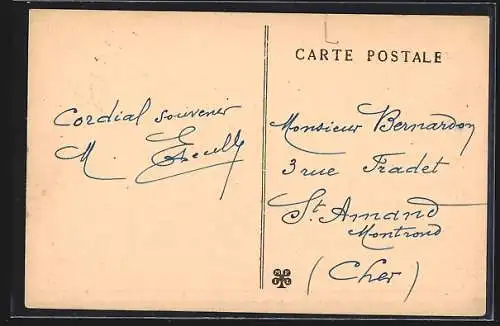 CARTE POSTALE
Cordial souvenir
M.
Monsieur Bernardon
3 rue Fradet
St. Amand
Montrond
(Cher)